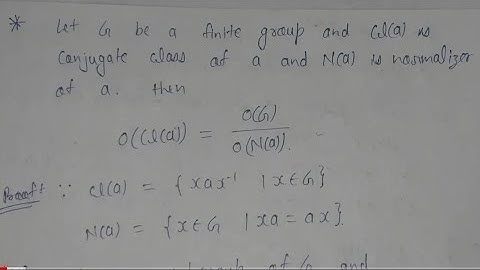 * Let G be a finite group and Cl(a) is
Conjugate class of a and N(a) is normalizer
of a. then
O(Cl(a)) = O(G) / O(N(a)).
Proof: ∵ Cl(a) = { xax⁻¹ | x ∈ G }
N(a) = { x ∈ G | xa = ax }.
of G and